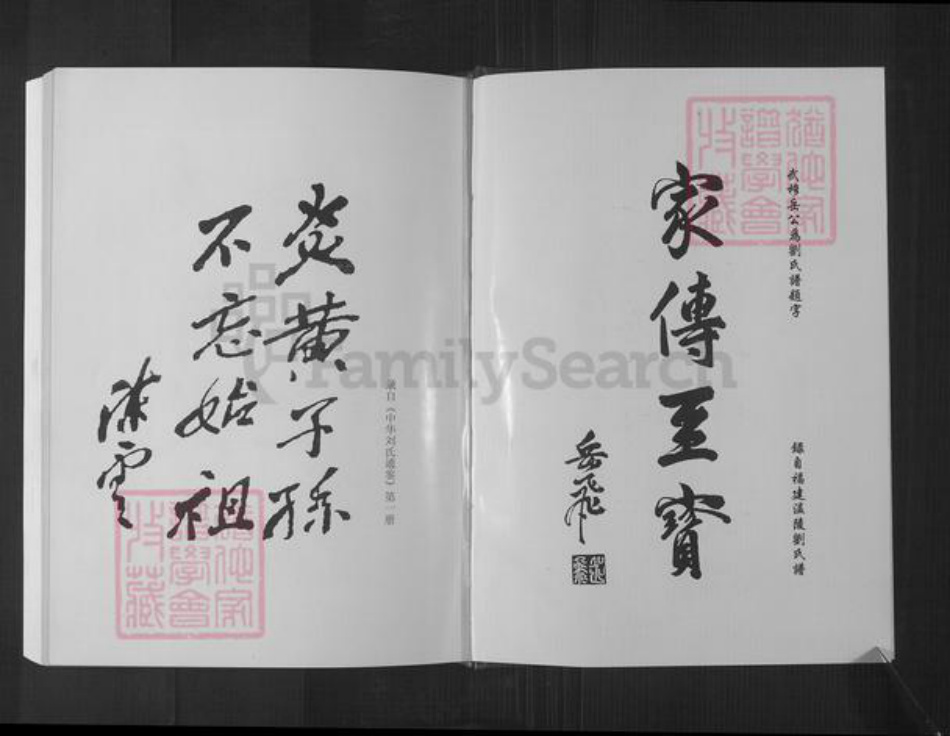 武穆岳公為劉氏譜題字
家傳至寶
岳飛
錄自福建溫陵劉氏譜
炎黄子孫
不忘始祖
陈雲
录自《中华刘氏通鉴》第一册
FamilySearch